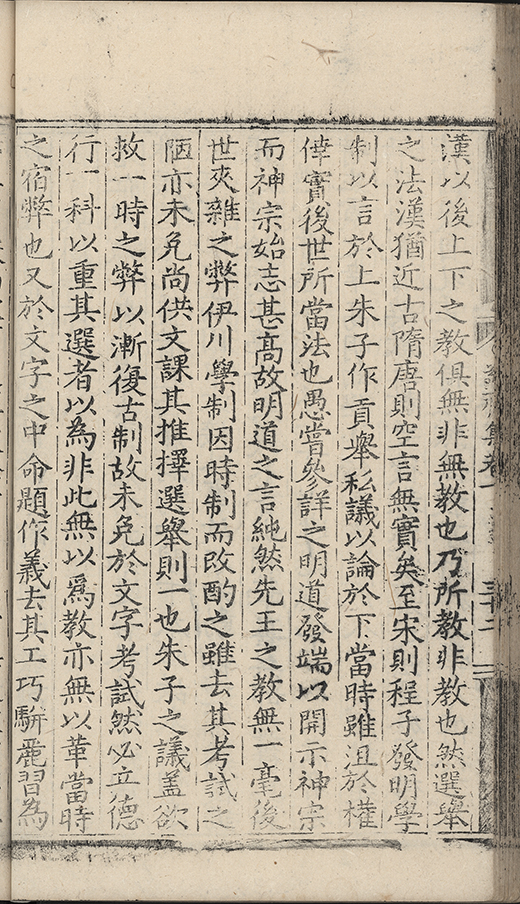 漢以後上下之教俱無非無教也乃所教非教也然選舉
之法漢猶近古隋唐則空言無實矣至宋則程子發明學
制以言於上朱子作貢舉私議以論於下當時雖沮於權
倖實後世所當法也愚嘗參詳之明道發端以開示神宗
而神宗始志甚高故明道之言純然先王之教無一毫後
世夾雜之弊伊川學制因時制而改酌之雖去其考試之
陋亦未免尚供文課其推擇選舉則一也朱子之議蓋欲
救一時之弊以漸復古制故未免於文字考試然必立德
行一科以重其選者以為非此無以爲教亦無以革當時
之宿弊也又於文字之中命題作義去其工巧騈麗習為